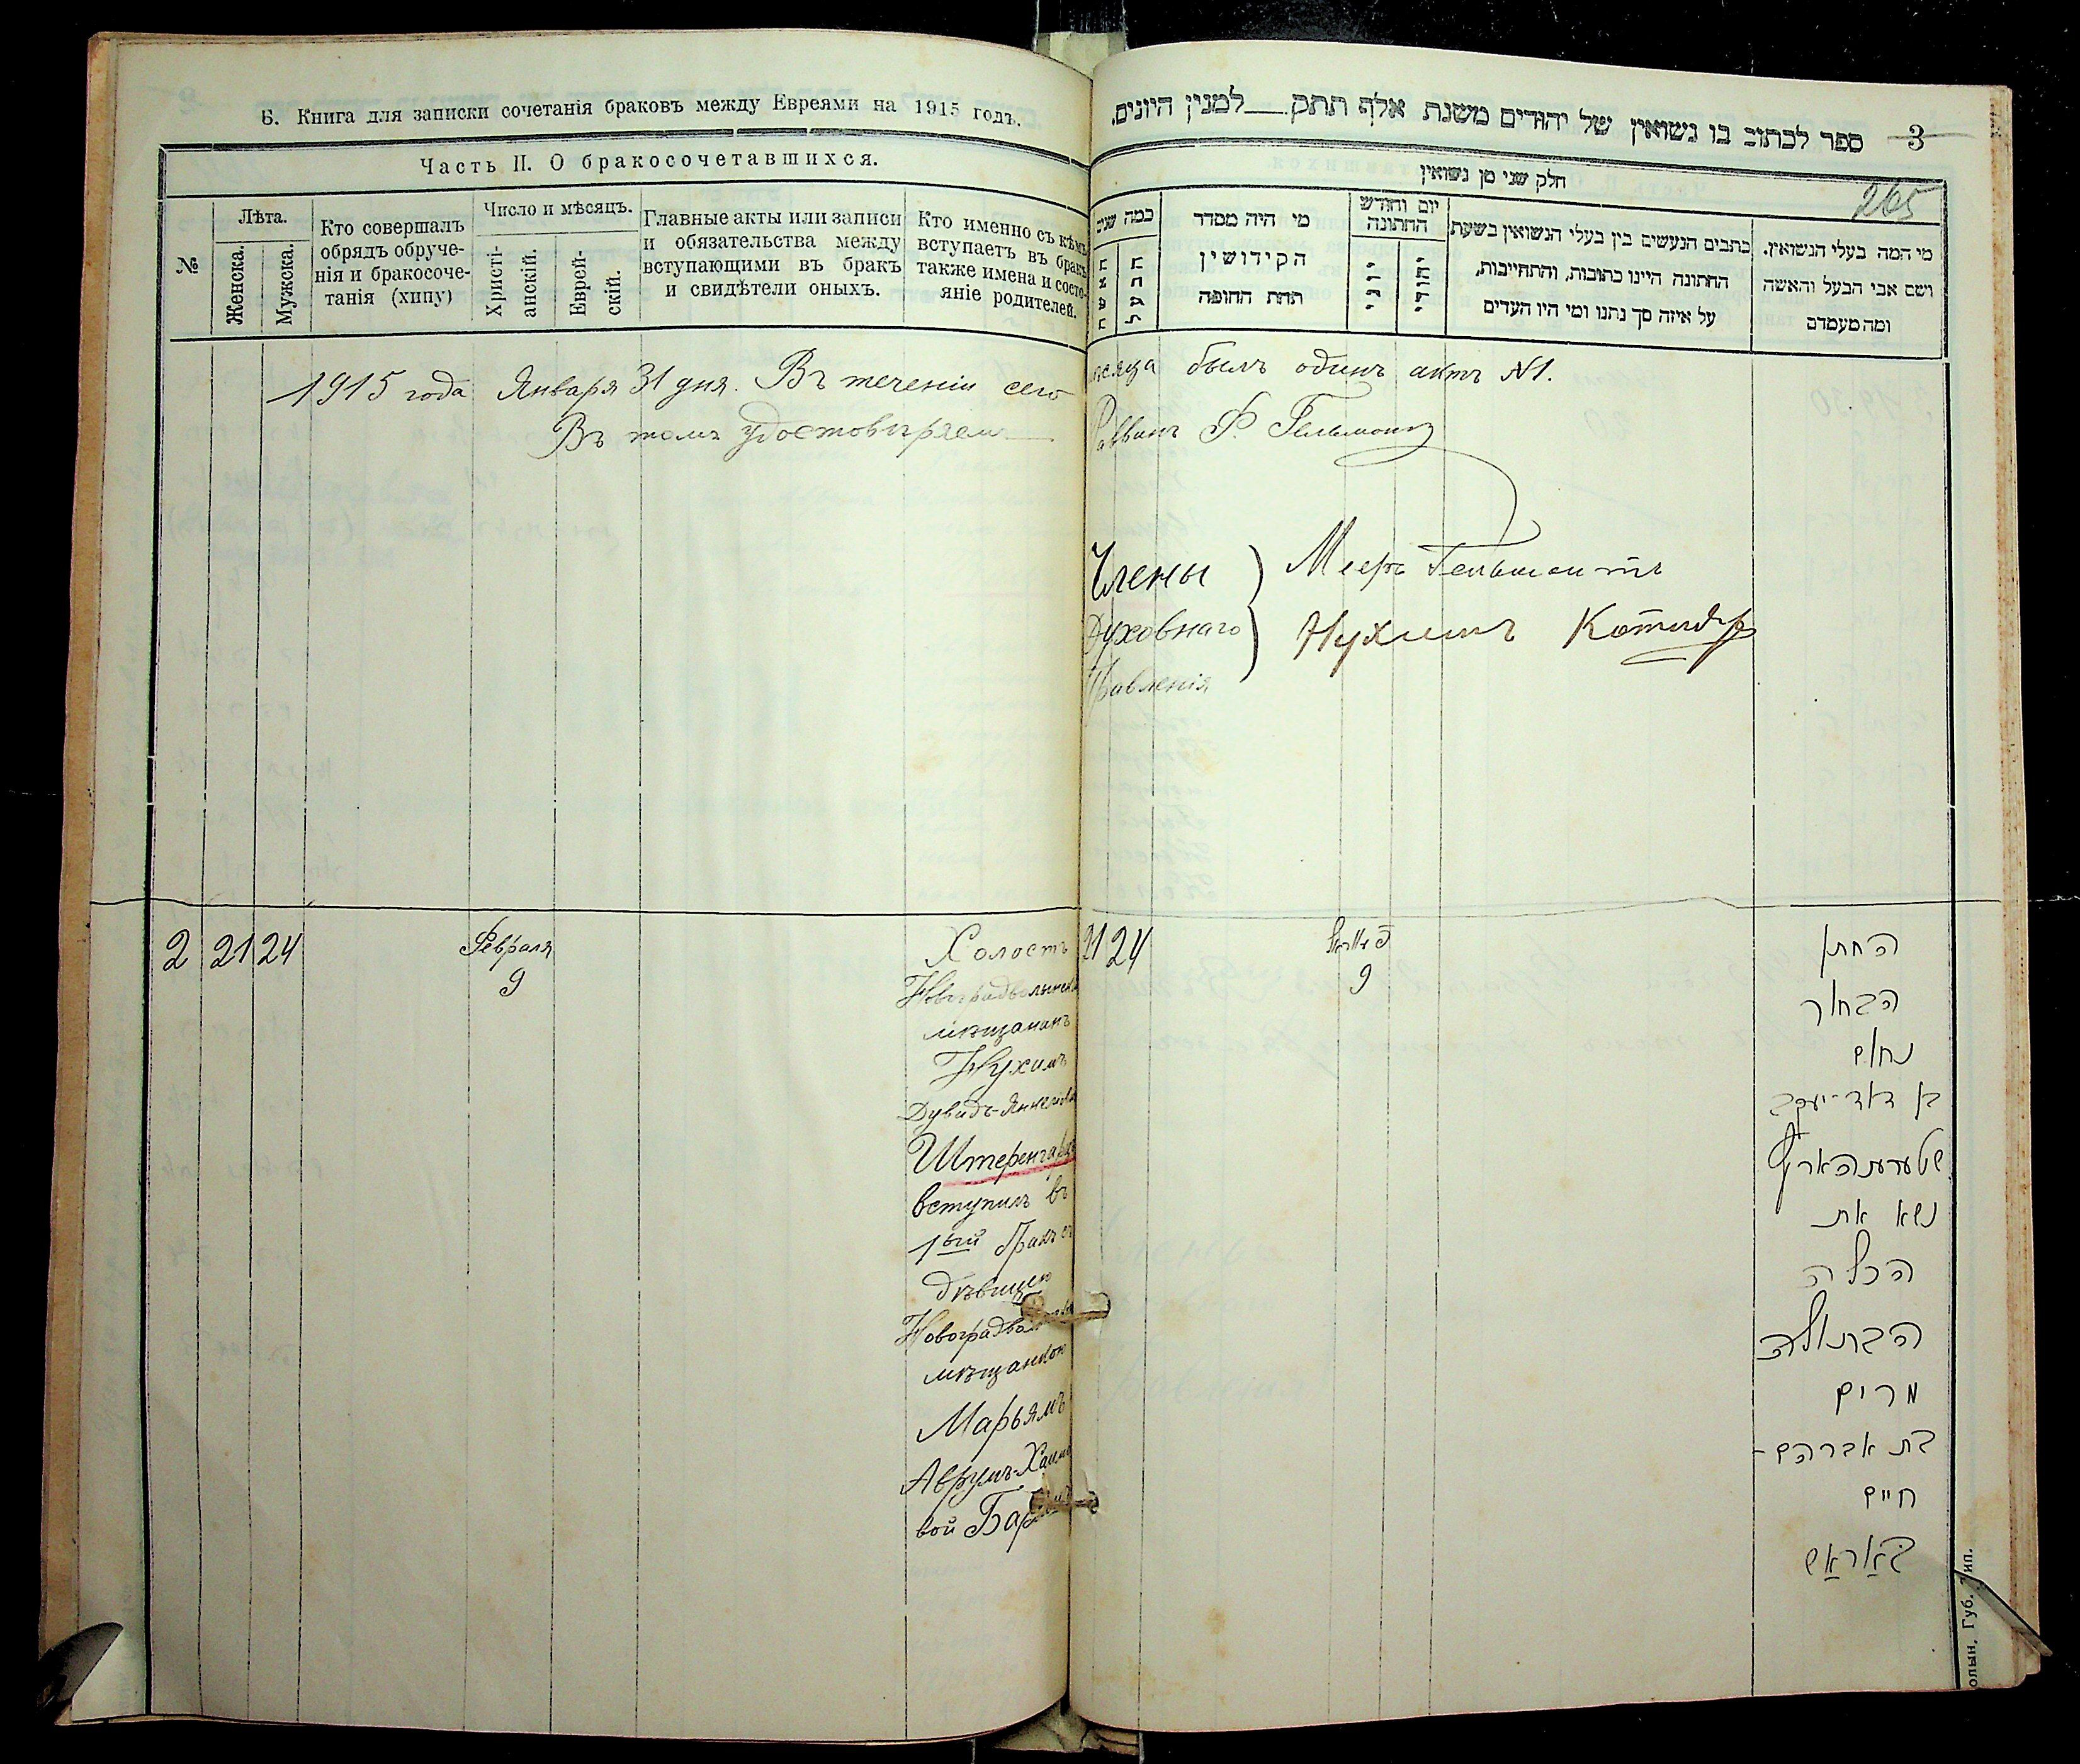 Б. Книга для записки сочетанія браковъ между Евреями на 1915 годъ.
Часть II. О бракосочетавшихся.
№
Лѣта.
Женска.
Мужска.
Кто совершалъ
обрядъ обруче-
нія и бракосоче-
танія (хипу)
Число и мѣсяцъ.
Христі-
анскій.
Еврей-
скій.
Главные акты или записи
и обязательства между
вступающими въ бракъ
и свидѣтели оныхъ.
Кто именно съ кѣмъ
вступаетъ въ бракъ
также имена и состо-
яніе родителей.
ספר לכתוב בו נשואין של יהודים משנת אלף תתק למנין היונים.
3
265
חלק שני מן נשואין
כמה שנים
האשה
הבעל
מי היה מסדר
הקידושין
תחת החופה
יום וחודש
החתונה
כתבים הנעשים בין בעלי הנשואין בשעת
החתונה היינו כתובות, והתחייבות,
על איזה סך נתנו ומי היו העדים
מי המה בעלי הנשואין.
ושם אבי הבעל והאשה
ומה מעמדם
1915 года Января 31 дня. Въ теченіи сего мѣсяца былъ одинъ актъ №1.
Въ томъ удостовѣряемъ
Раввинъ Ф. Гельманъ
Члены
Духовнаго
Правленія
Мееръ
Нухимъ Котляр
2 21 24
Февраля
9
Холостъ
Новоградволынскій
мѣщанинъ
Нухимъ
Дувидъ-Янкелевъ
Штеренгарцъ
вступилъ въ
1ый бракъ съ
дѣвицею
Новоградвол
мѣщанкою
Марьямъ
Аврумъ-Хаимо
вой Бар
21 24
9
החתן
הבחור
נחום
בן דוד-יעקב
שטערנהארץ
נשא את
הכלה
הבתולה
מרים
בת אברהם-
חיים
באַראַש
олын. Губ. Тип.